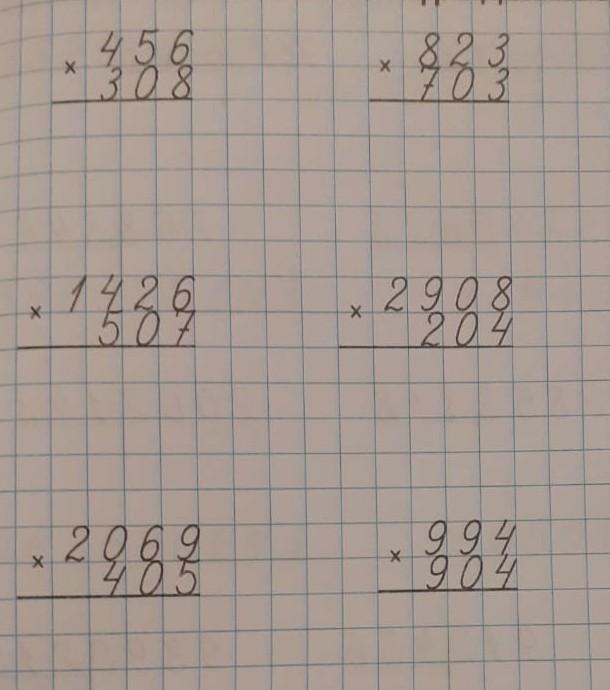 × 456
308
× 823
703
× 1426
507
× 2908
204
× 2069
405
× 994
904